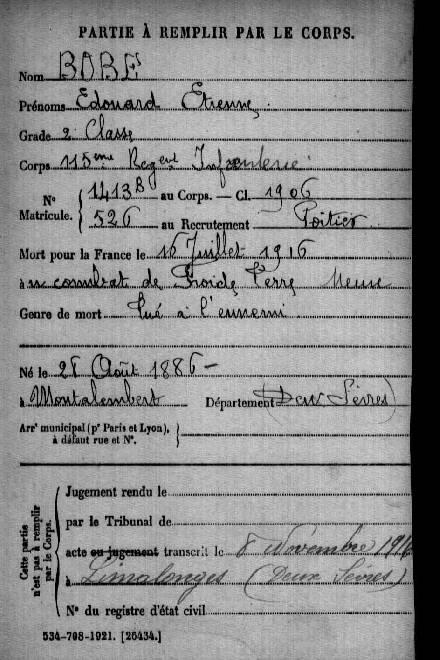 PARTIE À REMPLIR PAR LE CORPS.
Nom BOBE
Prénoms Edouard Etienne
Grade 2e Classe
Corps 115ème Reg ent Infanterie
N° Matricule. { 1413B au Corps. — Cl. 1906
526 au Recrutement Poitiers
Mort pour la France le 16 Juillet 1916
à combat de Froide Terre Meuse
Genre de mort Tué à l'ennemi
Né le Août 1886
à Montalembert Département (Deux Sèvres)
Arrt municipal (pr Paris et Lyon), à défaut rue et N°. }
Cette partie n'est pas à remplir par le Corps. { Jugement rendu le
par le Tribunal de
acte ou jugement transcrit le 8 Novembre 1916
à Limalonges (Deux Sèvres)
N° du registre d'état civil
534-708-1921. [26434.]